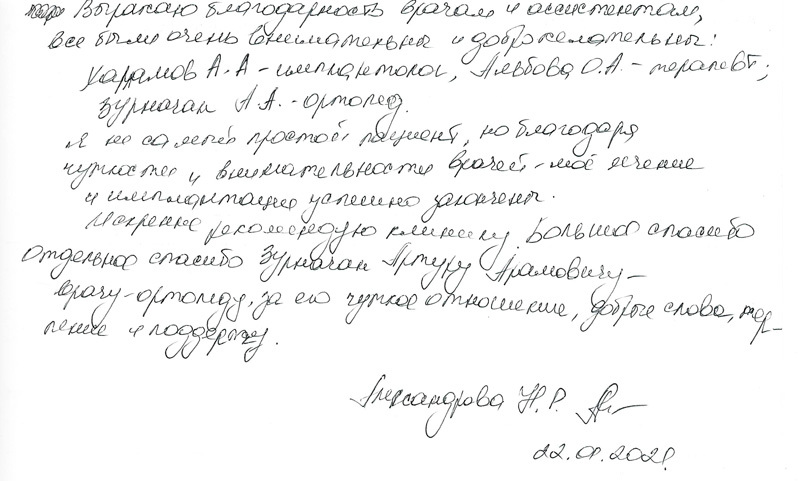 Выражаю благодарность врачам и ассистентам,
все были очень внимательны и доброжелательны:
А.А - имплантолог, Альбова О.А. - терапевт;
Зурначан А.А. - ортопед.
Я не самый простой пациент, но благодаря
чуткости и внимательности врачей - моё лечение
и имплантация успешно закончены.
Искренне рекомендую клинику. Большое спасибо
Отдельное спасибо Зурначан Артуру Арамовичу -
врачу-ортопеду, за его чуткое отношение, добрые слова, тер-
пение и поддержку.
Александрова Н.Р.